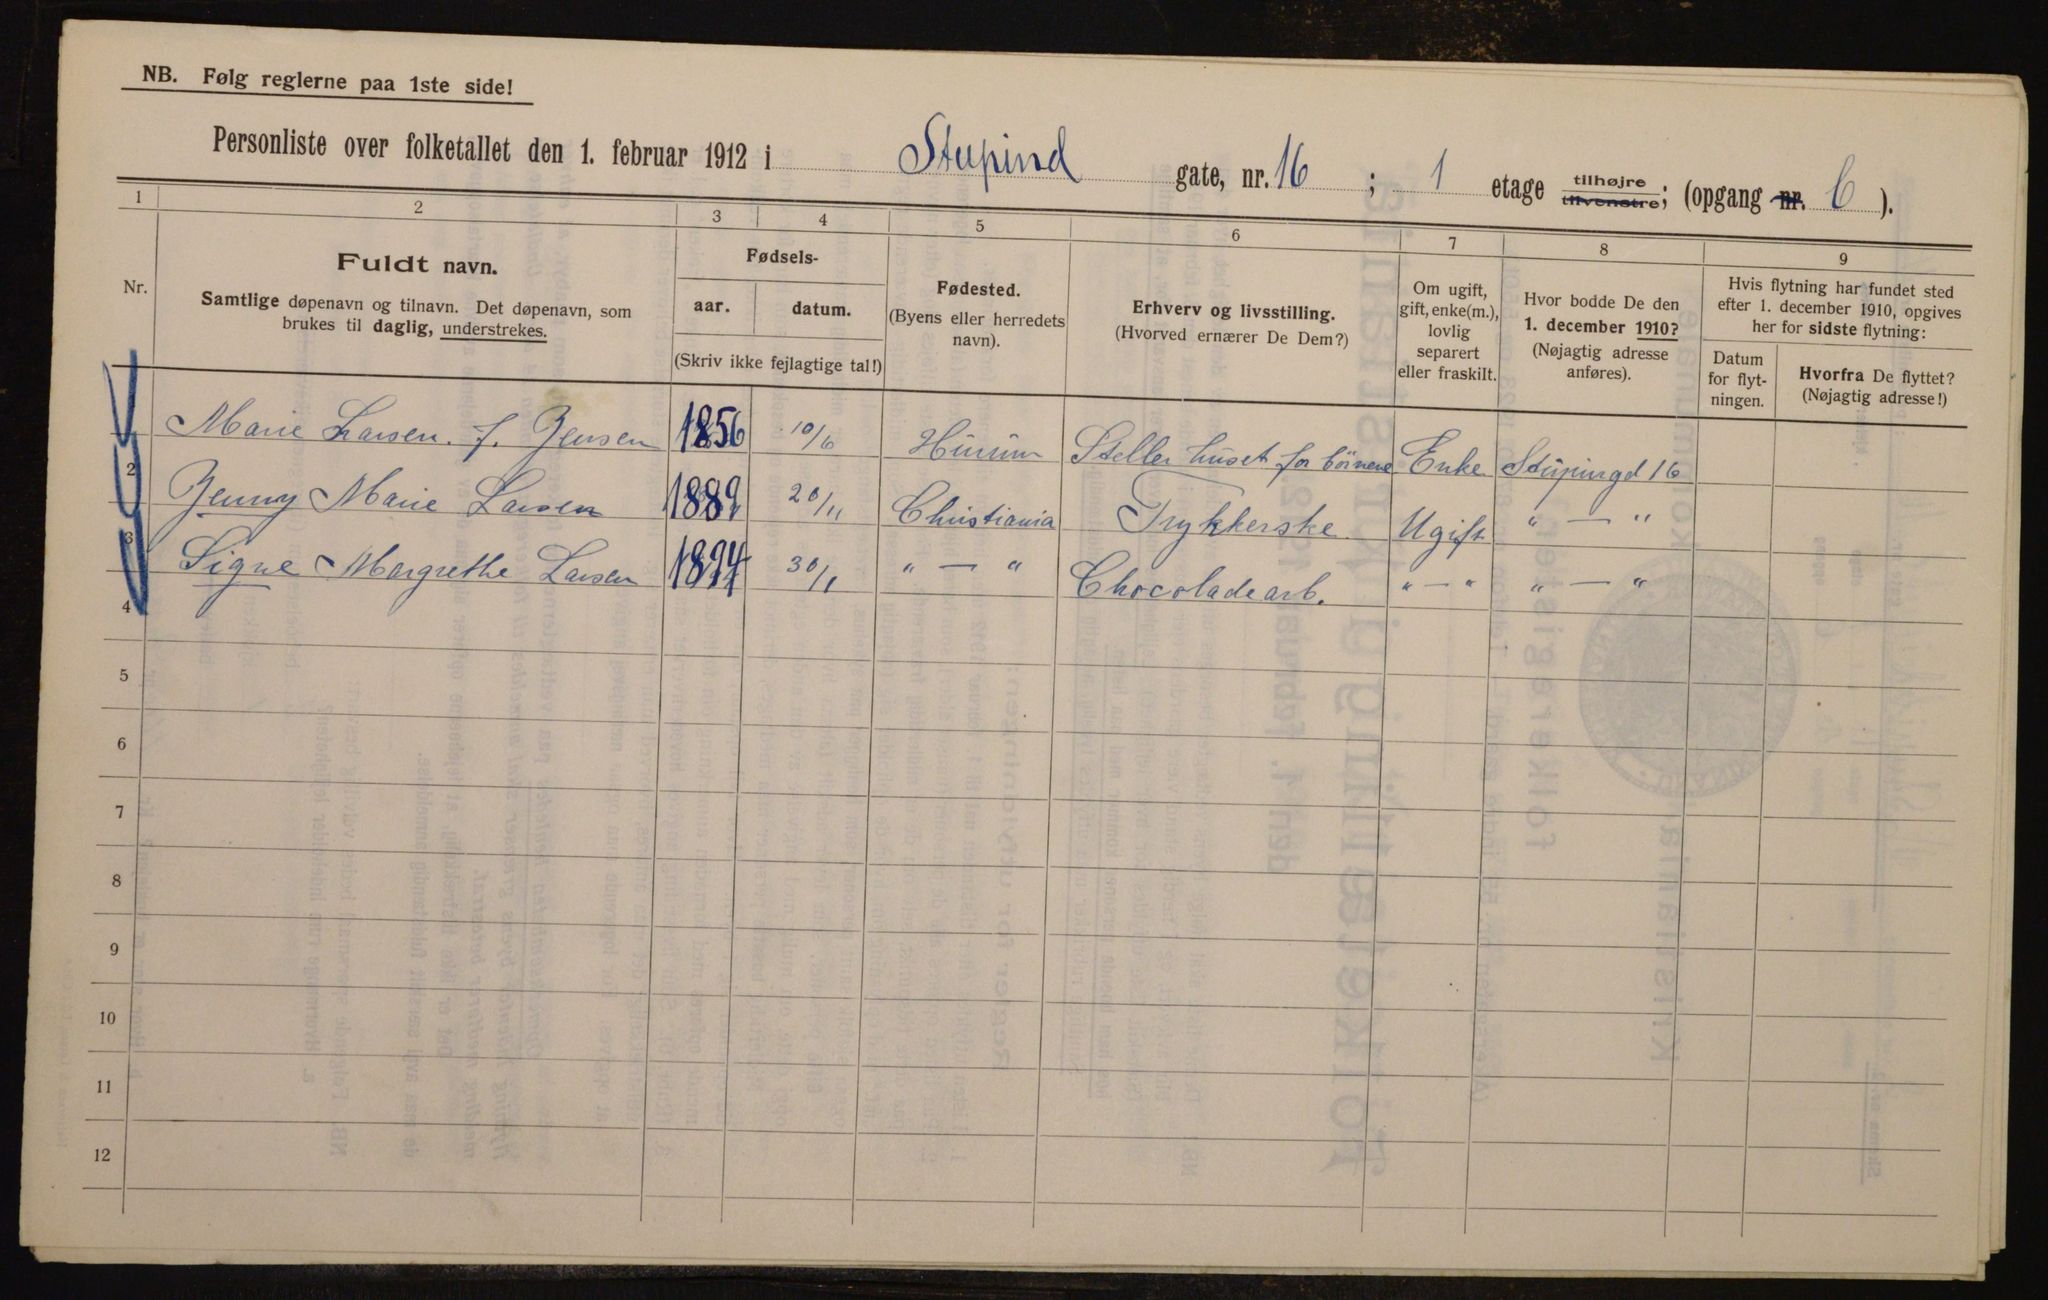 NB. Følg reglerne paa 1ste side!
Personliste over folketallet den 1. februar 1912 i Stupind gate, nr. 16 ; 1 etage tilhøjre tilvenstre; (opgang nr. C ).
1 2 3 4 5 6 7 8 9
Nr.
Fuldt navn.
Samtlige døpenavn og tilnavn. Det døpenavn, som
brukes til daglig, understrekes.
Fødsels-
aar. datum.
(Skriv ikke fejlagtige tal!)
Fødested.
(Byens eller herredets
navn).
Erhverv og livsstilling.
(Hvorved ernærer De Dem?)
Om ugift,
gift, enke(m.),
lovlig
separert
eller fraskilt.
Hvor bodde De den
1. december 1910?
(Nøjagtig adresse
anføres).
Hvis flytning har fundet sted
efter 1. december 1910, opgives
her for sidste flytning:
Datum
for flyt-
ningen.
Hvorfra De flyttet?
(Nøjagtig adresse!)
Marie Larsen. f. Jensen 1856 10/6 Hurum Steller huset for börnene Enke Stupingd 16
2 Jenny Marie Larsen 1889 20/11 Christiania Trykkerske Ugift " — "
3 Signe Margrethe Larsen 1894 30/1 " — " Chocoladearb. " — " " — "
4
5
6
7
8
9
10
11
12